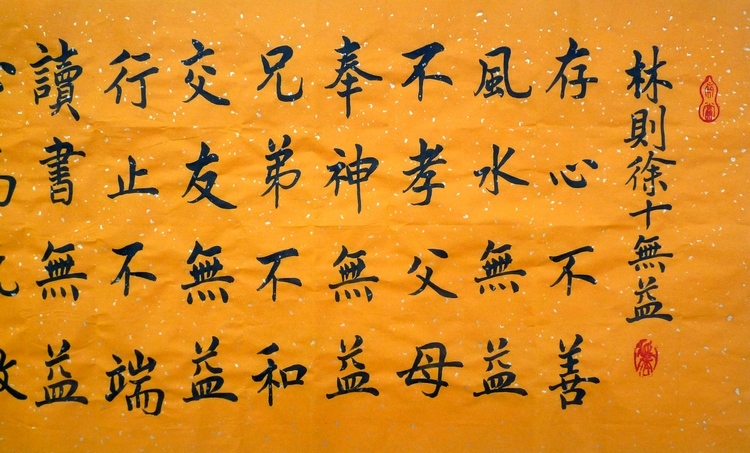 林則徐十無益
存心不善
風水無益
不孝父母
奉神無益
兄弟不和
交友無益
行止不端
讀書無益